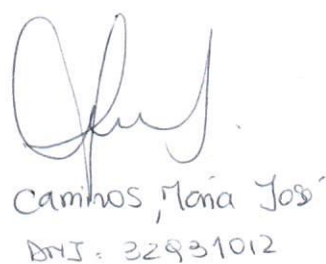 Caminos, María José
DNI: 32931012